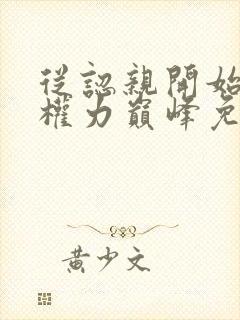 從認親開始
權力巔峰免
黃少文